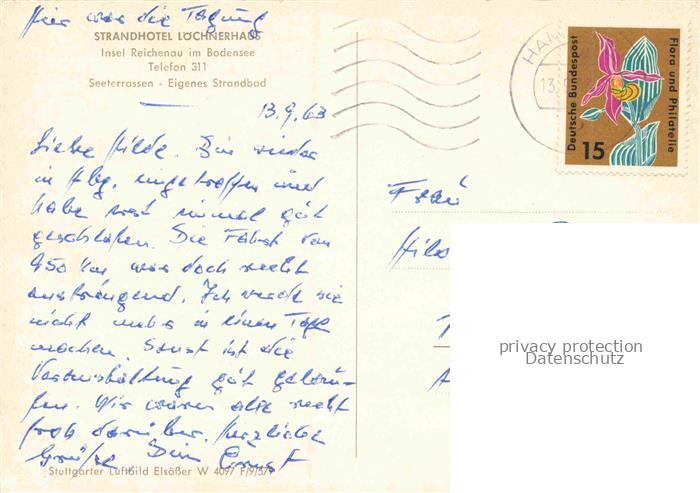 Hier war die Tagung
STRANDHOTEL LÖCHNERHAUS
Insel Reichenau im Bodensee
Telefon 311
Seeterrassen - Eigenes Strandbad
13.9.63
Liebe Hilde. Bin wieder
in Hbg. eingetroffen und
habe erst einmal gut
geschlafen. Die Fahrt von
950 km war doch recht
anstrengend. Ich werde sie
nicht mehr in einem Tage
machen. Sonst ist die
Veranstaltung gut gelau-
fen. Wir waren alle recht
froh darüber. Herzliche
Grüße Dein Ernst
Stuttgarter Luftbild Elsäßer W 4097 F/9/5/
HAM
13.
Deutsche Bundespost
Flora und Philatelie
15
Frau
privacy protection
Datenschutz